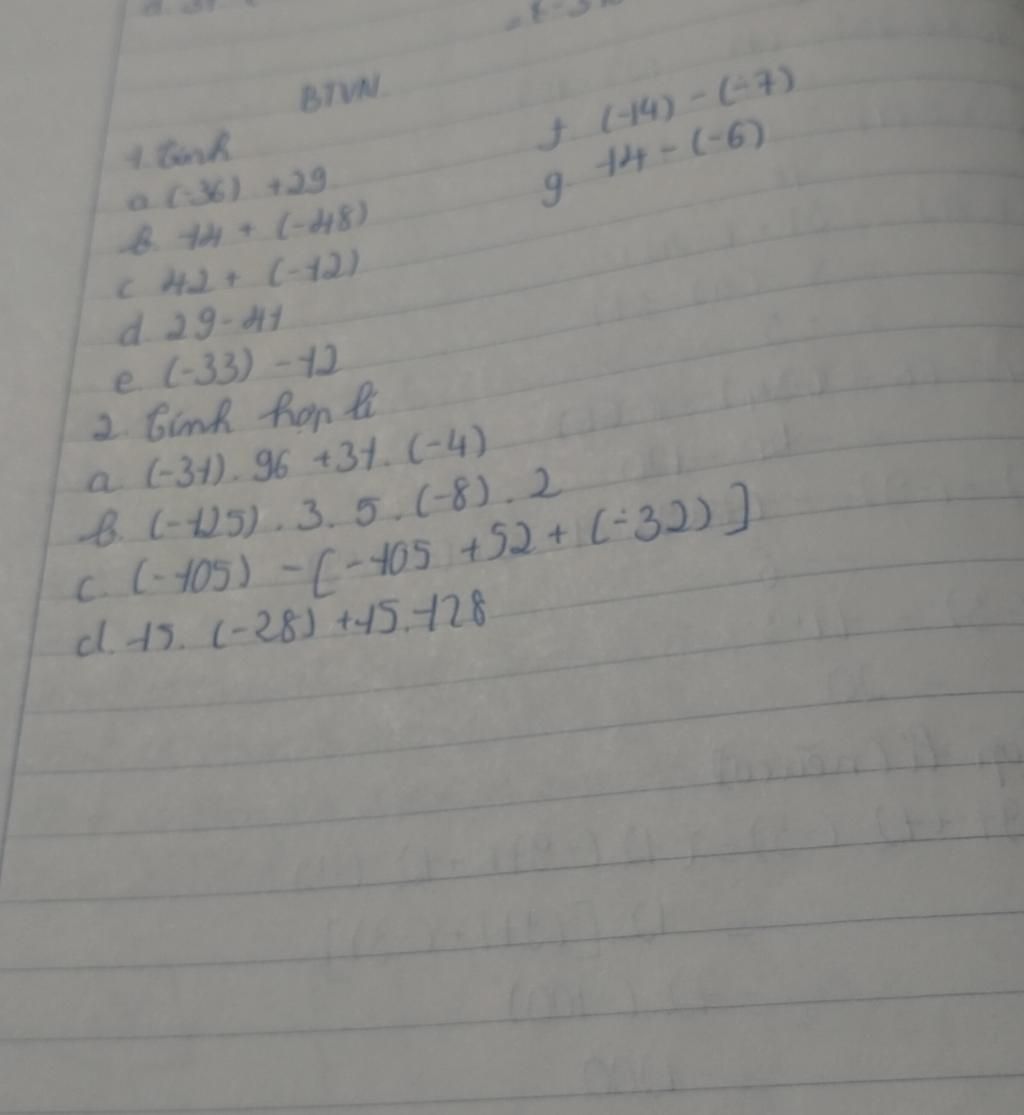 BTVN
1. Tính
a. (-36) + 29
b. 14 + (-48)
c 42 + (-12)
d. 29 - 41
e. (-33) - 12
f (-14) - (-7)
g. 14 - (-6)
2. Tính hợp lí
a. (-31). 96 + 31. (-4)
b. (-125). 3. 5. (-8). 2
c. (-105) - [-105 + 52 + (-32)]
d. 15. (-28) + 15. 128